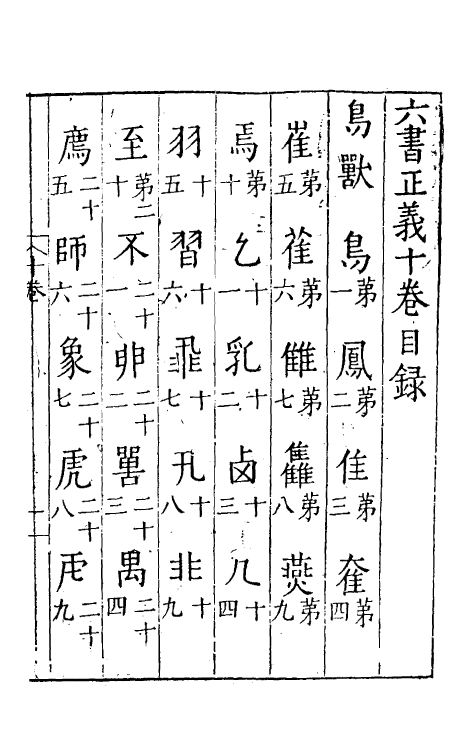 六書正義十卷目録
鳥獸 鳥第一 鳳第二 隹第三 奞第四
雈第五 萑第六 雔第七 雥第八 燕第九
焉第十 乞十一 乳十二 卤十三 几十四
羽十五 習十六 飛十七 卂十八 非十九
至第二十 不二十一 卵二十二 嘼二十三 禺二十四
廌二十五 師二十六 象二十七 虎二十八 二十九
十卷